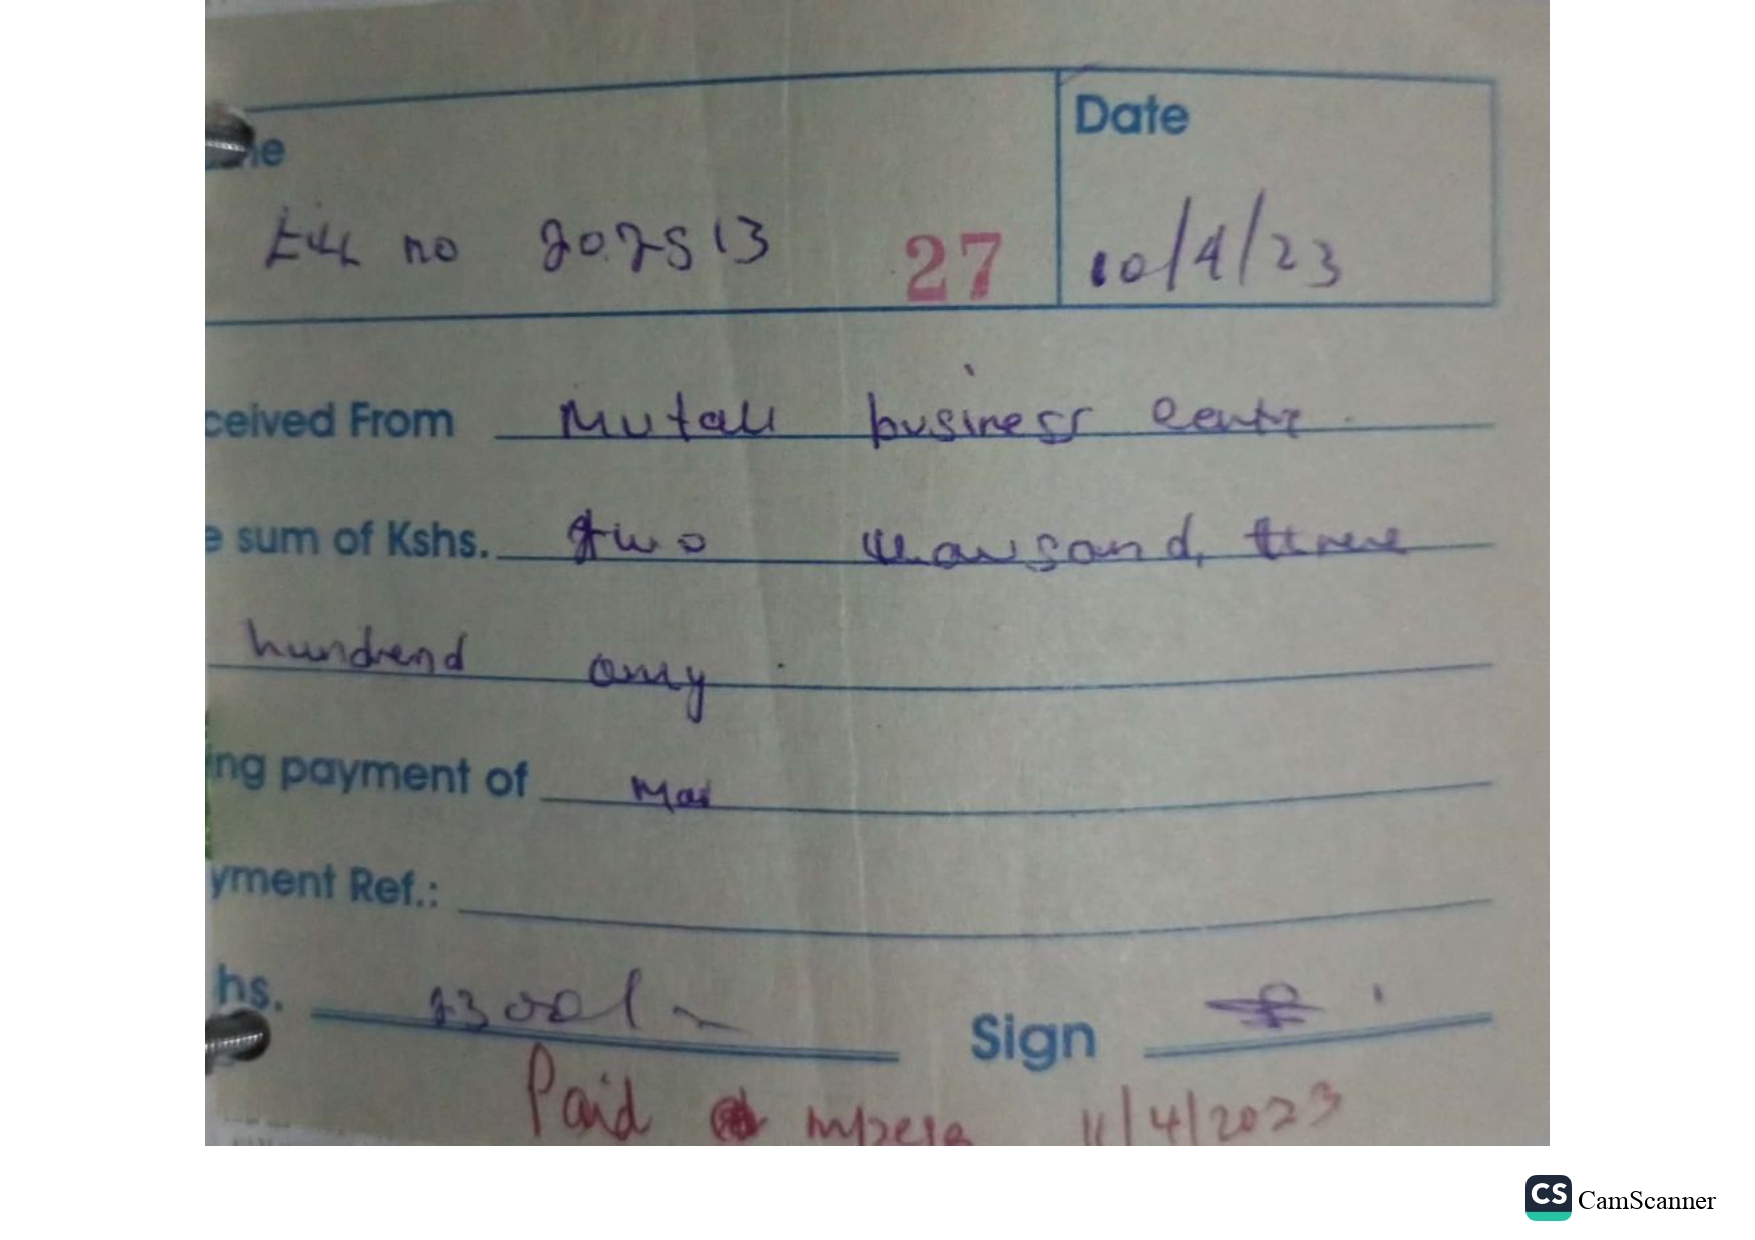 ne
Date
no 207513 27 10/4/23
ceived From Mutall business Centr
e sum of Kshs. two thousand, three
hundrend only
ing payment of Mai
yment Ref.:
hs. 2300/- Sign
Paid mpesa 11/4/2023
CS CamScanner